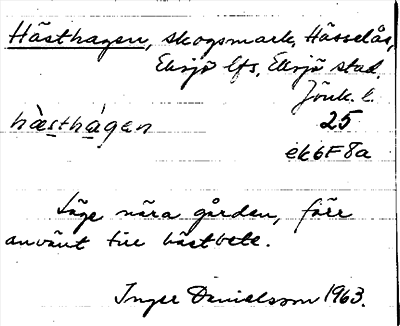 Hästhagen, skogsmark, Hässelås,
Eksjö lfs, Eksjö stad
Jönk. l.
hàsthágen 25
ek 6F8a
Läge nära gården, förr
använt till hästbete.
Inger Danielsson 1963.